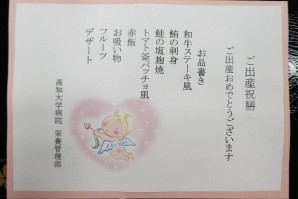 ご出産祝膳
ご出産おめでとうございます
お品書き
和牛ステーキ風
鮪の刺身
鮭の塩麹焼
トマト釜パッチョ風
赤飯
お吸い物
フルーツ
デザート
高知大学病院 栄養管理部